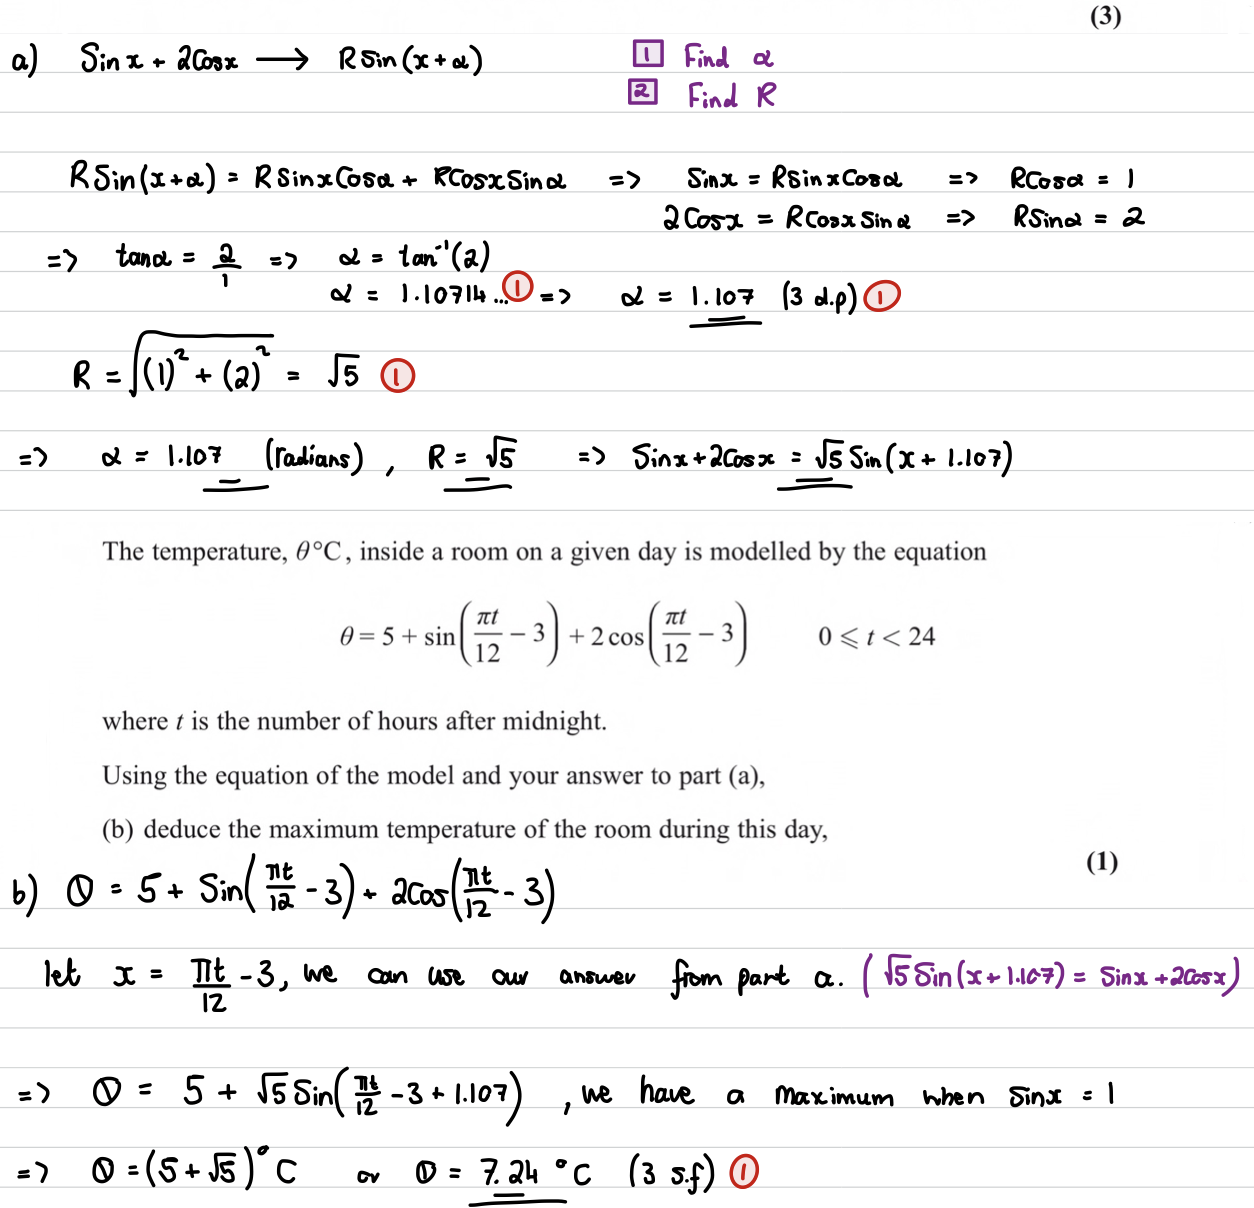 (3)
a) Sin x + 2Cosx ⟶ RSin(x+α) 1 Find α
2 Find R
RSin(x+α) = RSinxCosα + RCosxSinα => Sinx = RSinxCosα => RCosα = 1
2Cosx = RCosxSinα => RSinα = 2
=> tanα = 2/1 => α = tan⁻¹(2)
α = 1.10714... 1 => α = 1.107 (3 d.p) 1
R = √((1)² + (2)²) = √5 1
=> α = 1.107 (radians), R = √5 => Sinx+2Cosx = √5 Sin(x + 1.107)
The temperature, θ°C, inside a room on a given day is modelled by the equation
θ = 5 + sin(πt/12 − 3) + 2cos(πt/12 − 3) 0 ⩽ t < 24
where t is the number of hours after midnight.
Using the equation of the model and your answer to part (a),
(b) deduce the maximum temperature of the room during this day,
(1)
b) θ = 5 + Sin(πt/12 - 3) + 2Cos(πt/12 - 3)
let x = πt/12 - 3, we can use our answer from part a. (√5 Sin(x+1.107) = Sinx +2Cosx)
=> θ = 5 + √5 Sin(πt/12 - 3 + 1.107), we have a maximum when Sinx = 1
=> θ = (5 + √5)°C or θ = 7.24 °C (3 s.f) 1